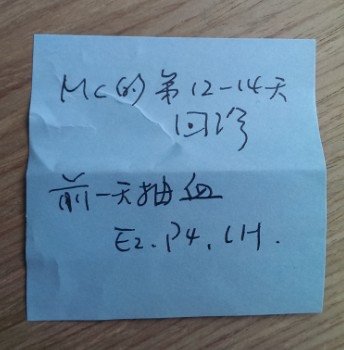 MC的第12-14天
回诊
前一天抽血
E2.P4.LH.